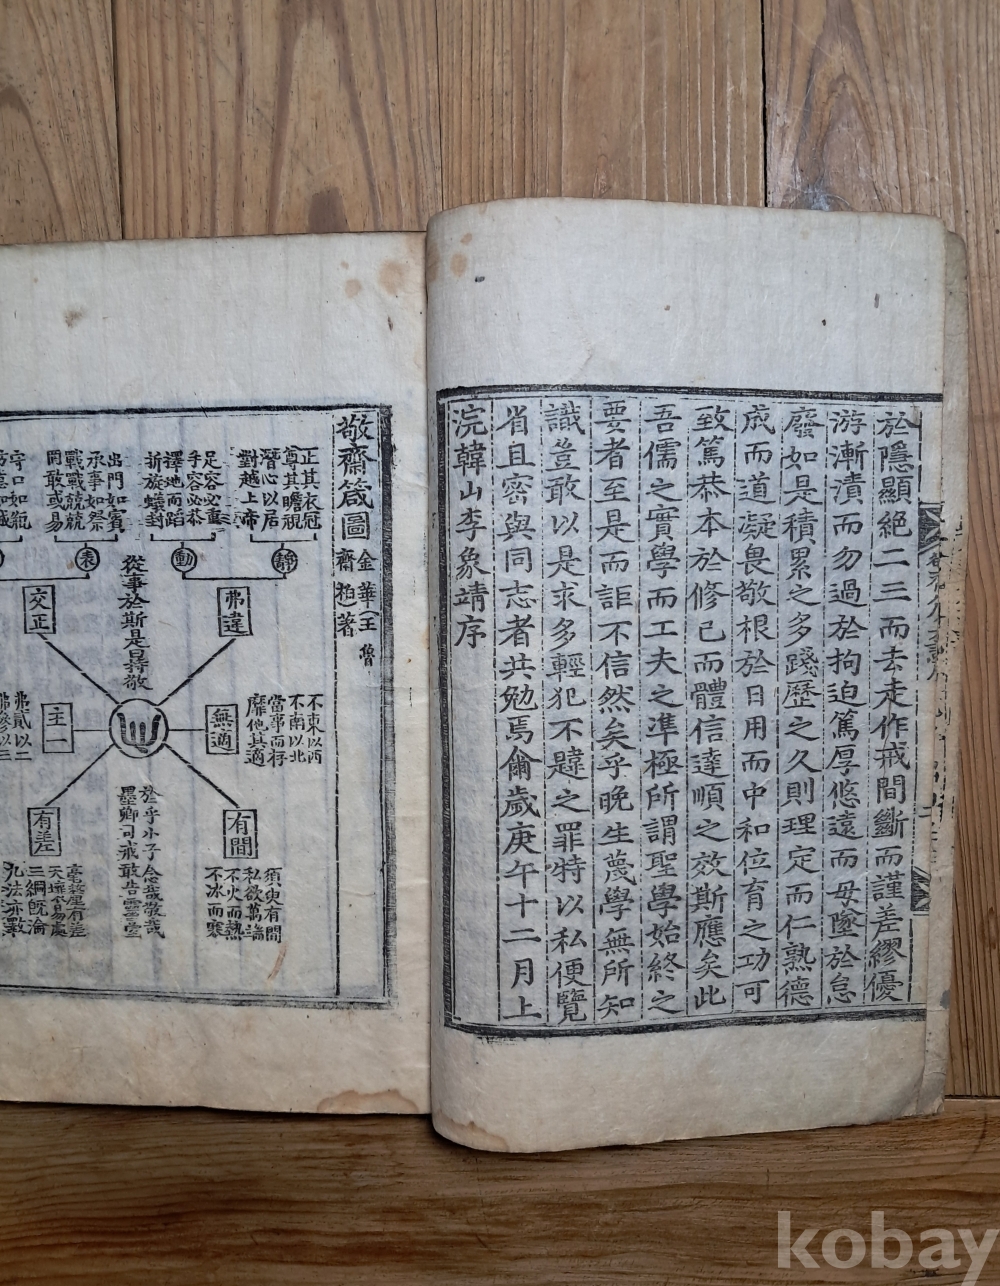 於隱顯絶二三而去走作戒間斷而謹差繆優
游漸漬而勿過於拘迫篤厚悠遠而毋墜於怠
廢如是積累之多踐歷之久則理定而仁熟德
成而道凝畏敬根於日用而中和位育之功可
致篤恭本於修己而體信達順之效斯應矣此
吾儒之實學而工夫之準極所謂聖學始終之
要者至是而詎不信然矣乎晩生蔑學無所知
識豈敢以是求多輕犯不韙之罪特以私便覽
省且密與同志者共勉焉爾歲庚午十二月上
浣韓山李象靖序
敬齋箴圖
金華王魯
齋柏著
正其衣冠
尊其瞻視
潛心以居
對越上帝
靜
足容必重
手容必恭
擇地而蹈
折旋蟻封
動
出門如賓
承事如祭
戰戰兢兢
罔敢或易
表
守口如瓶
弗違
從事於斯是曰持敬
交正
不東以西
不南以北
當事而存
靡他其適
無適
心
主一
弗貳以二
弗參以三
有間
須臾有間
私欲萬端
不火而熱
不冰而寒
於乎小子念哉敬哉
墨卿司戒敢告靈臺
有差
毫釐有差
天壤易處
三綱旣淪
九法亦斁
kobay